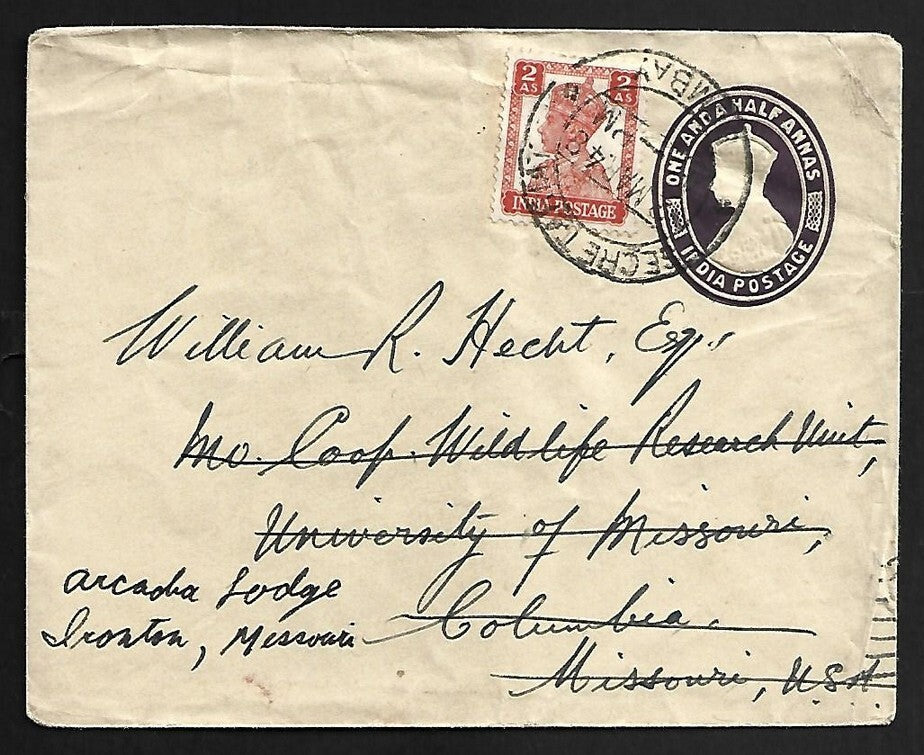 2 2
AS AS
INDIA POSTAGE
ONE AND A HALF ANNAS
INDIA POSTAGE
William R. Hecht, Esq.
Mo. Coop. Wildlife Research Unit,
University of Missouri,
Columbia.
Missouri, USA
Arcadia Lodge
Ironton, Messouri